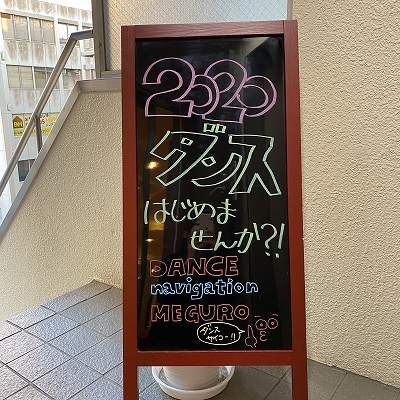 2020
ダンス
はじめま
せんか?!
DANCE
navigation
MEGURO
ダンス
サイコー!!